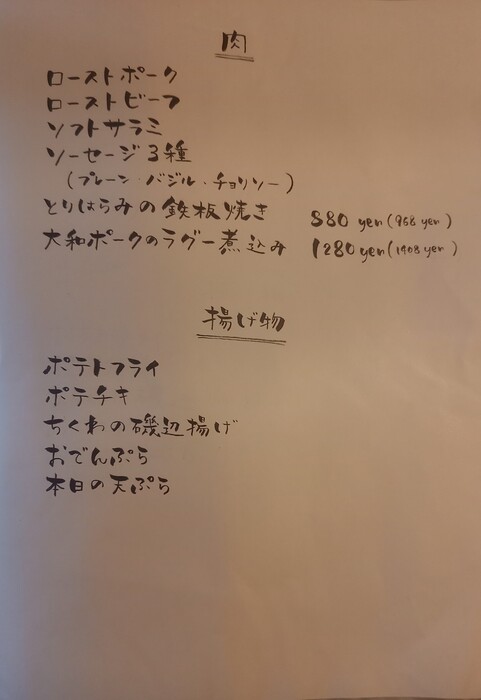 肉
ローストポーク
ローストビーフ
ソフトサラミ
ソーセージ3種
(プレーン・バジル・チョリソー)
とりはらみの鉄板焼き 880 yen(968 yen)
大和ポークのラグー煮込み 1280 yen(1408 yen)
揚げ物
ポテトフライ
ポテチキ
ちくわの磯辺揚げ
おでんぷら
本日の天ぷら